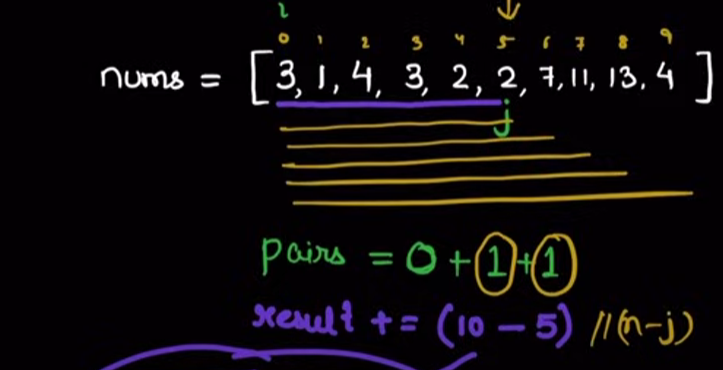 i
0 1 2 3 4 5 6 7 8 9
nums = [3, 1, 4, 3, 2, 2, 7, 11, 13, 4]
j
pairs = 0 + 1 + 1
result += (10 - 5) //(n-j)